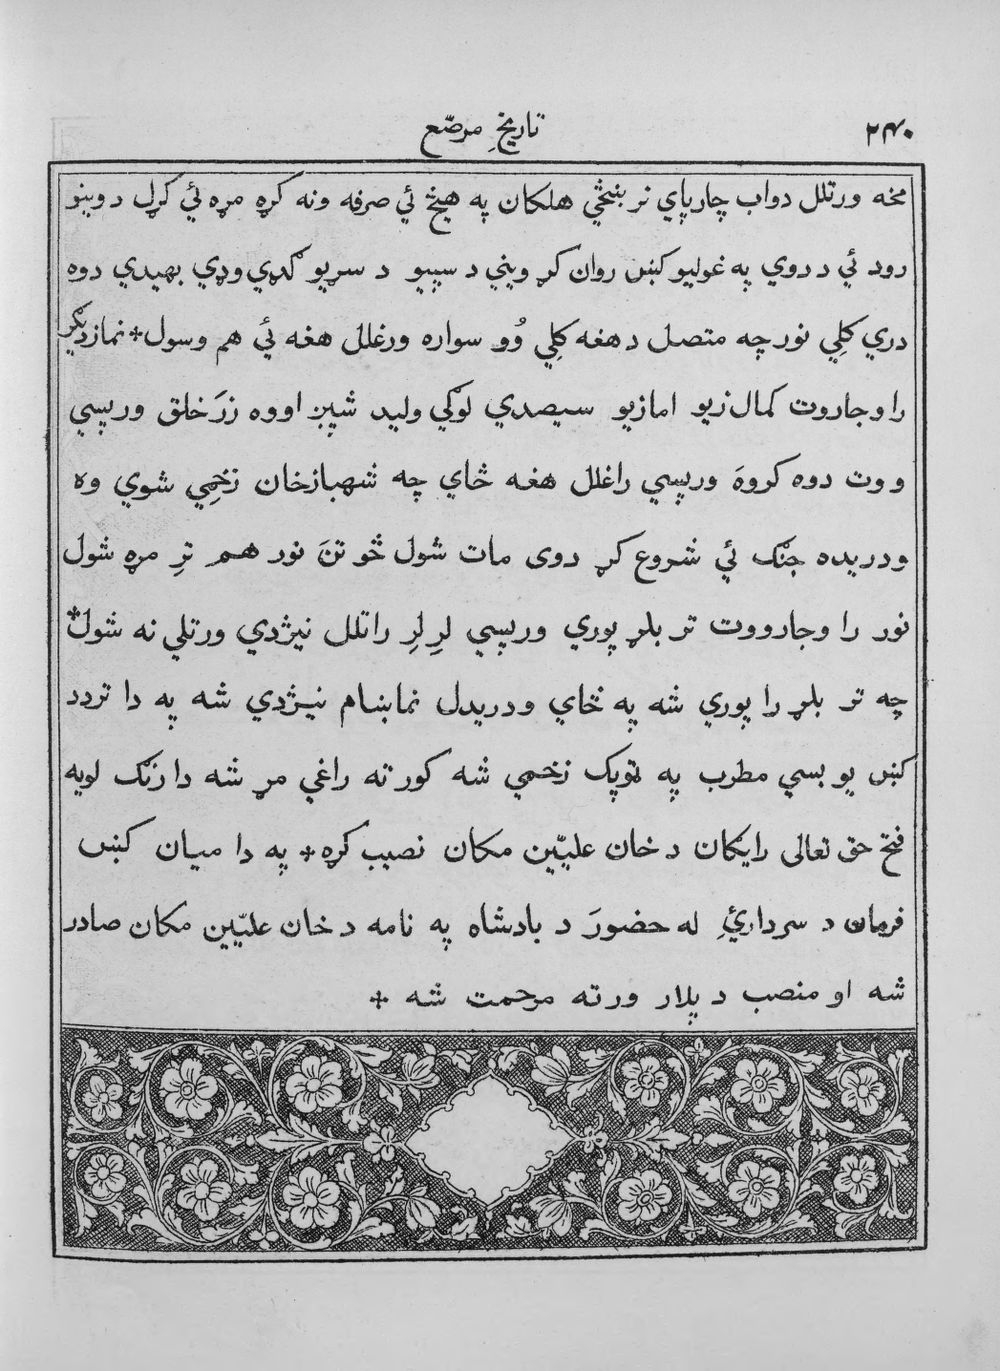 ۲۴۰
تاریخِ مرصّع
مخه ورتلل دواب چارپاي نر ښځي هلکان په هیڅ ئي صرفه ونه کړه مړه ئي کړل د وینو
رود ئي د دروي په غولیو کښں روان کړ ویني د سپیو د سریو کډي وډي بهیدي دوه
دري کلِي نور چه متصل د هغه کلِي وُو سواره ورغلل هغه ئي هم وسول * نمازدیګر
را وجاروت کمال زیو امازیو سیصدي لوګي ولید شپږ اووه زرَ خلق ورپسي
ووت دوه کروهَ ورپسي راغلل هغه ځاي چه شهبازخان زخمِي شوي وه
ودریده جنګ ئي شروع کړ دوی مات شول څو تنَ نور هم ترِ مړه شول
نور را وجارووت تر بلړ پوري ورپسي لرِ لرِ راتلل نیژدي ورتلي نه شول *
چه تر بلړ را پوري شه په ځاي ودریدل نماښام نیژدي شه په دا تردد
کښں یو بسي مطرب په توپک زخمي شه کور ته راغي مړ شه دا رنګ لویه
فتح حق تعالی رایګان د خان علیّین مکان نصیب کړه * په دا میان کښں
فرمان د سردارئِ له حضورَ د بادشاه په نامه د خان علیّین مکان صادر
شه او منصب د پلار ورته مرحمت شه *